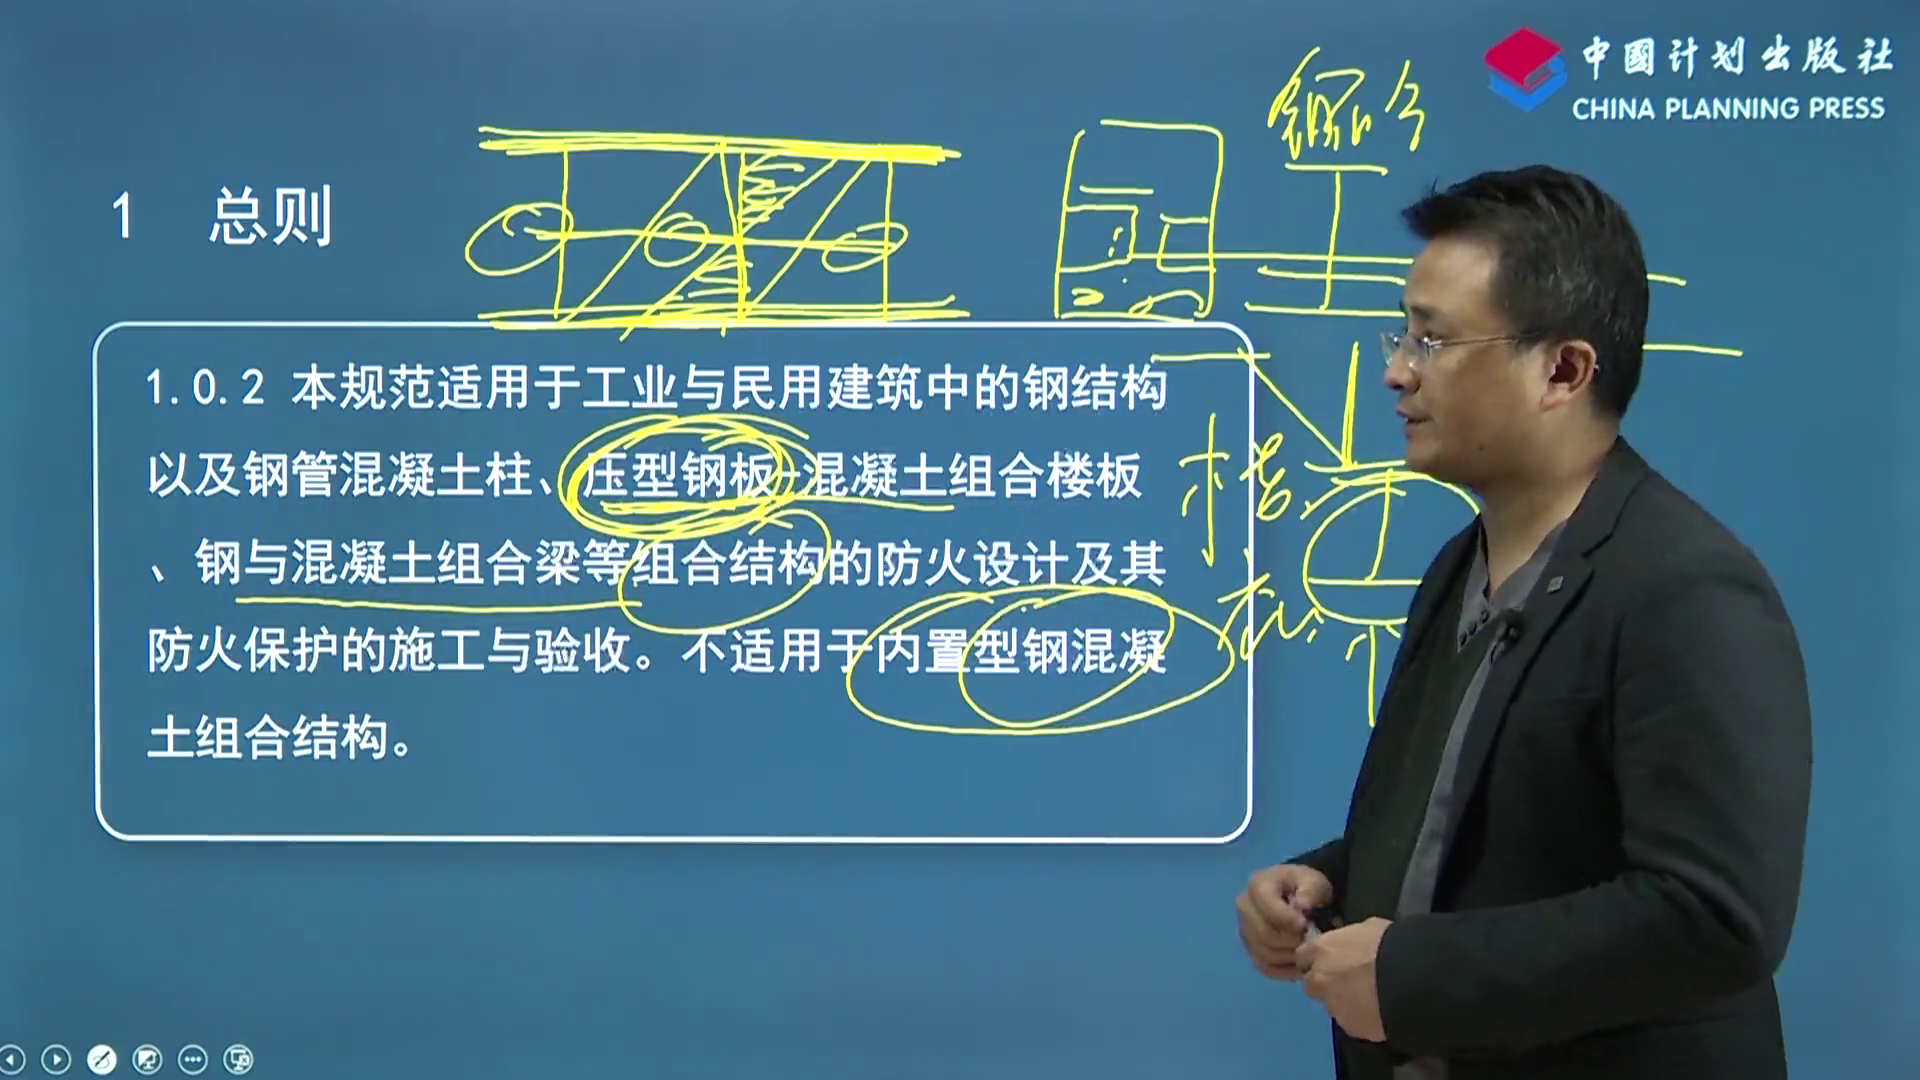 中國计划出版社
CHINA PLANNING PRESS
1 总则
1.0.2 本规范适用于工业与民用建筑中的钢结构
以及钢管混凝土柱、压型钢板-混凝土组合楼板
、钢与混凝土组合梁等组合结构的防火设计及其
防火保护的施工与验收。不适用于内置型钢混凝
土组合结构。